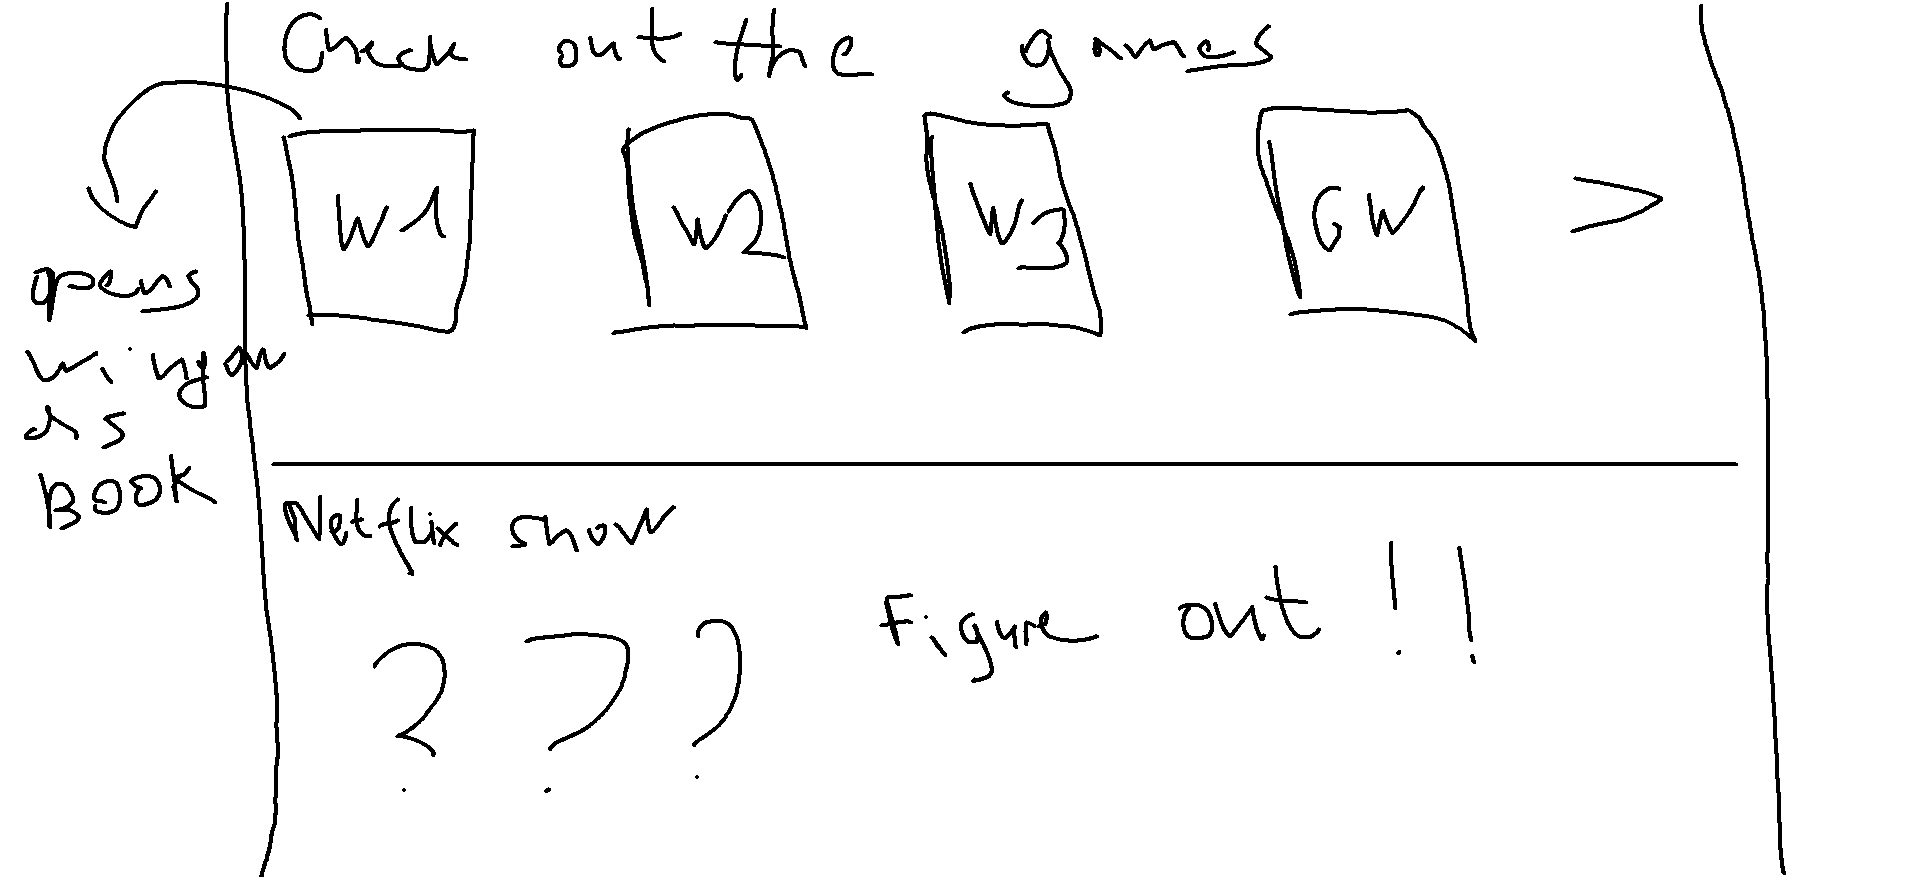 Check out the games
W1 W2 W3 GW >
opens
as
BOOK
Netflix show
Figure out !!
???